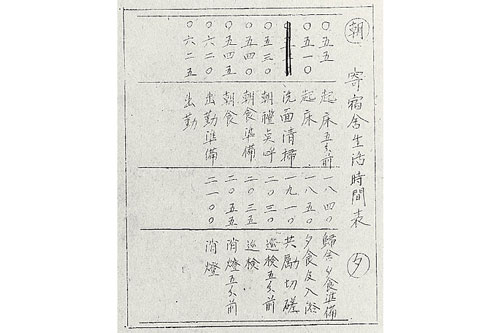 朝 寄宿舎生活時間表 夕
〇五五 起床五分前
〇五一〇 起床
洗面清掃
〇五三〇 朝禮点呼
〇五四〇 朝食準備
〇五四五 朝食
〇六二〇 出勤準備
〇六二五 出勤
一八四〇 歸舎夕食準備
一八五〇 夕食及入浴
一九一〇 共励切磋
二〇三〇 巡検五分前
二〇三五 巡検
二〇五五 消燈五分前
二一〇〇 消燈